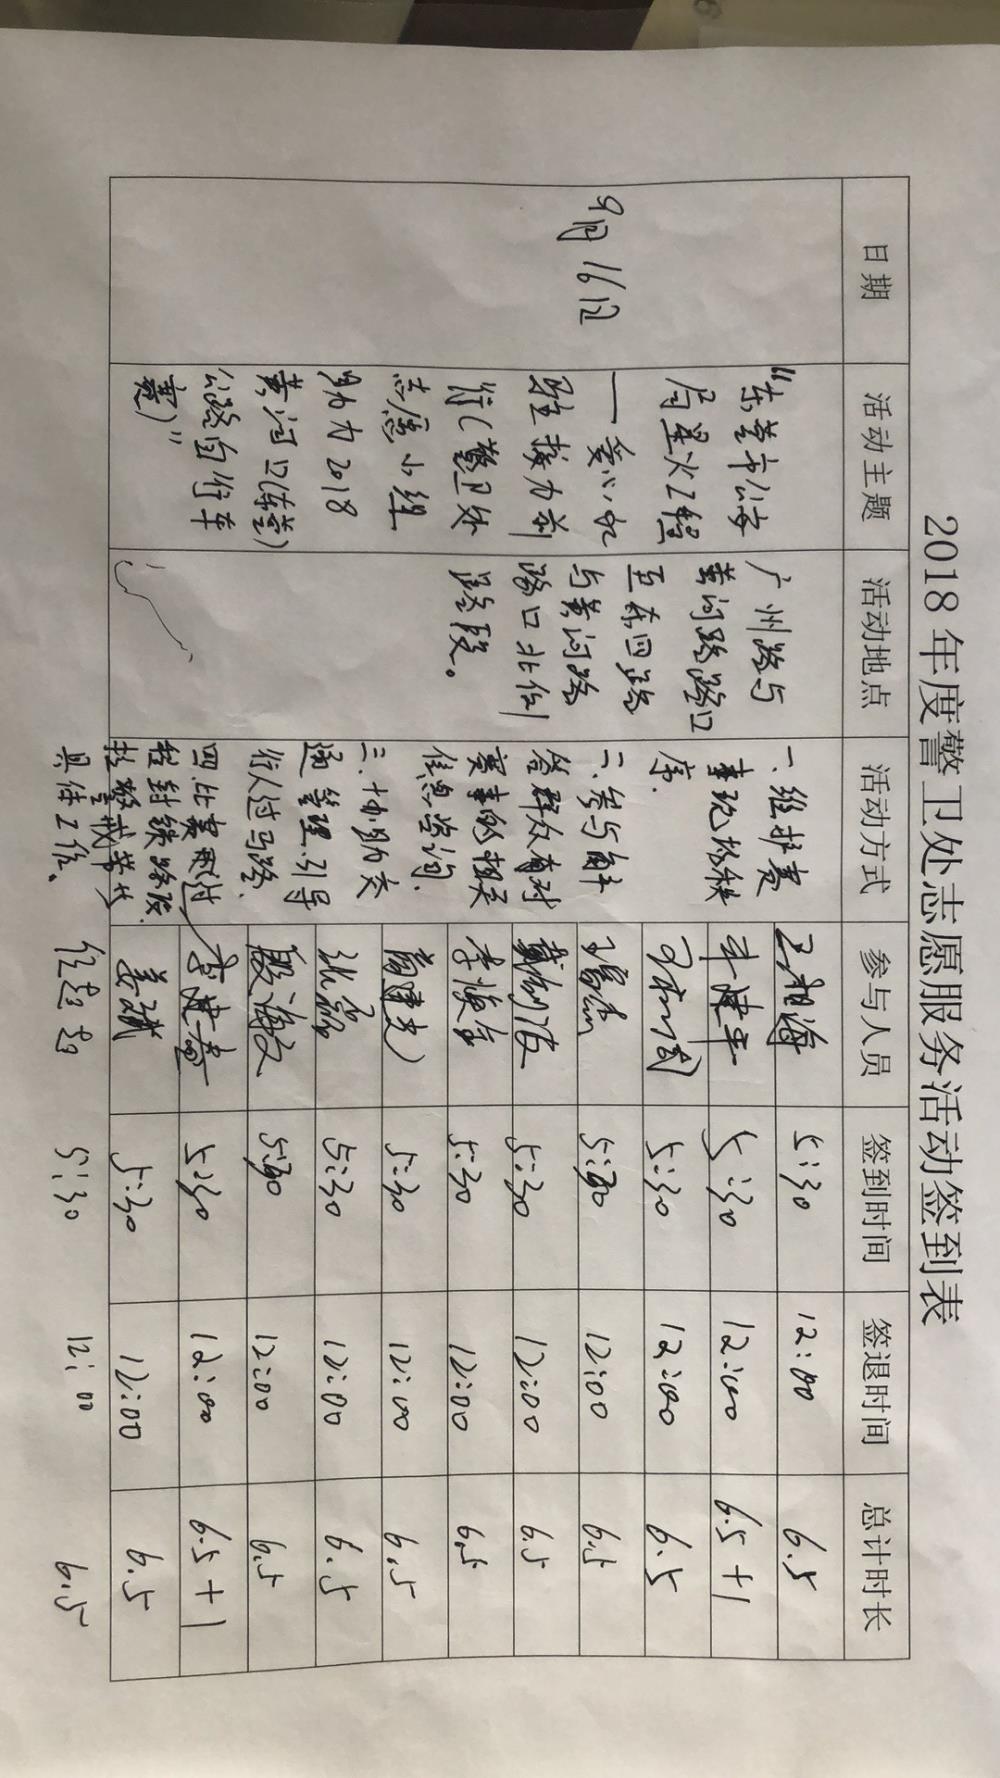 2018 年度警卫处志愿服务活动签到表
日期 活动主题 活动地点 活动方式 参与人员 签到时间 签退时间 总计时长
9月16日
"东营市公安
局星火工程
——爱心水
驿接力前
行(警卫处
志愿小组
助力2018
黄河口(东营)
公路自行车
赛)"
广州路与
黄河路路口
至东四路
与黄河路
路口北侧
路段。
一.维护赛
事现场秩
序.
二.参与解
答群众有对
赛事的相关
信息咨询.
三.协助交
通管理.引导
行人过马路.
四.比赛
程封锁路段.
拉警戒带等
具体工作、
5:30 12:00 6.5
5:30 12:00 6.5+1
5:30 12:00 6.5
5:30 12:00 6.5
5:30 12:00 6.5
李海金 5:30 12:00 6.5
5:30 12:00 6.5
张磊 5:30 12:00 6.5
5:30 12:00 6.5
5:30 12:00 6.5+1
姜斌 5:30 12:00 6.5
任超超 5:30 12:00 6.5